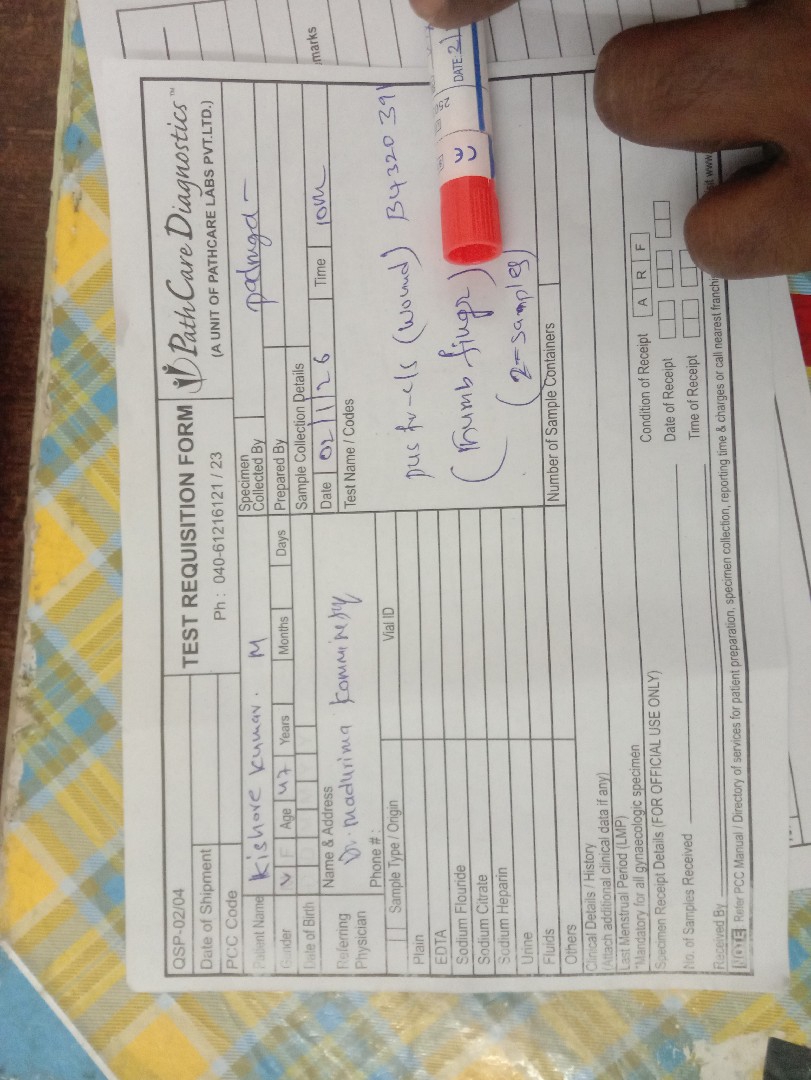 QSP-02/04
TEST REQUISITION FORM
PathCare Diagnostics™
(A UNIT OF PATHCARE LABS PVT.LTD.)
Date of Shipment
Ph : 040-61216121 / 23
PCC Code
Patient Name Kishore Kumar. M
Specimen Collected By
Gender M F Age 47 Years Months Days
Prepared By
Date of Birth
Sample Collection Details
Referring Physician
Name & Address
Dr. Madurima Kommineny
Date 02/1/26 Time 10M
Phone #:
Test Name / Codes
pus for -c/s (wound) B4320 391
(Thumb finger)
(2-Samples)
Sample Type / Origin Vial ID
Plain
EDTA
Sodium Flouride
Sodium Citrate
Sodium Heparin
Urine
Fluids
Number of Sample Containers
Others
Clinical Details / History
(Attach additional clinical data if any)
Last Menstrual Period (LMP)
*Mandatory for all gynaecologic specimen
Specimen Receipt Details (FOR OFFICIAL USE ONLY)
Condition of Receipt A R F
Date of Receipt
No. of Samples Received
Time of Receipt
Received By
NOTE Refer PCC Manual / Directory of services for patient preparation, specimen collection, reporting time & charges or call nearest
www
marks
DATE: